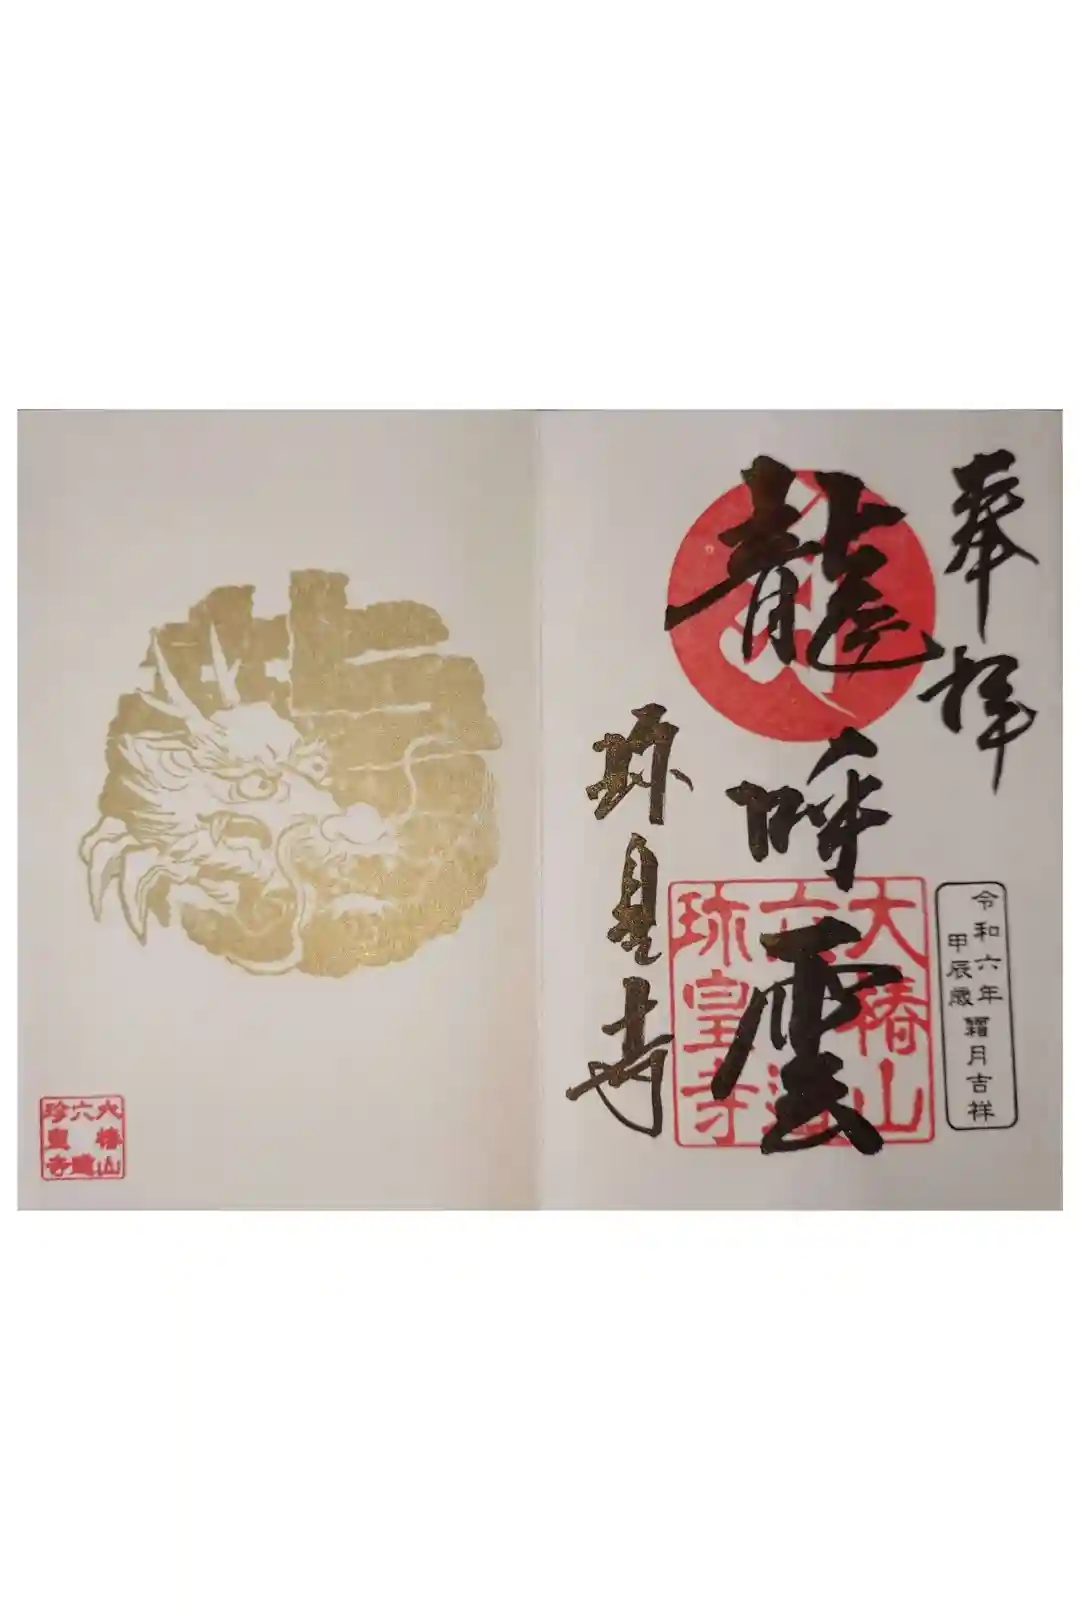 奉拝
龍呼雲
令和六年
甲辰歳 霜月吉祥
大椿山
六道
珎皇寺
珎皇寺
大椿山
六道
珍皇寺